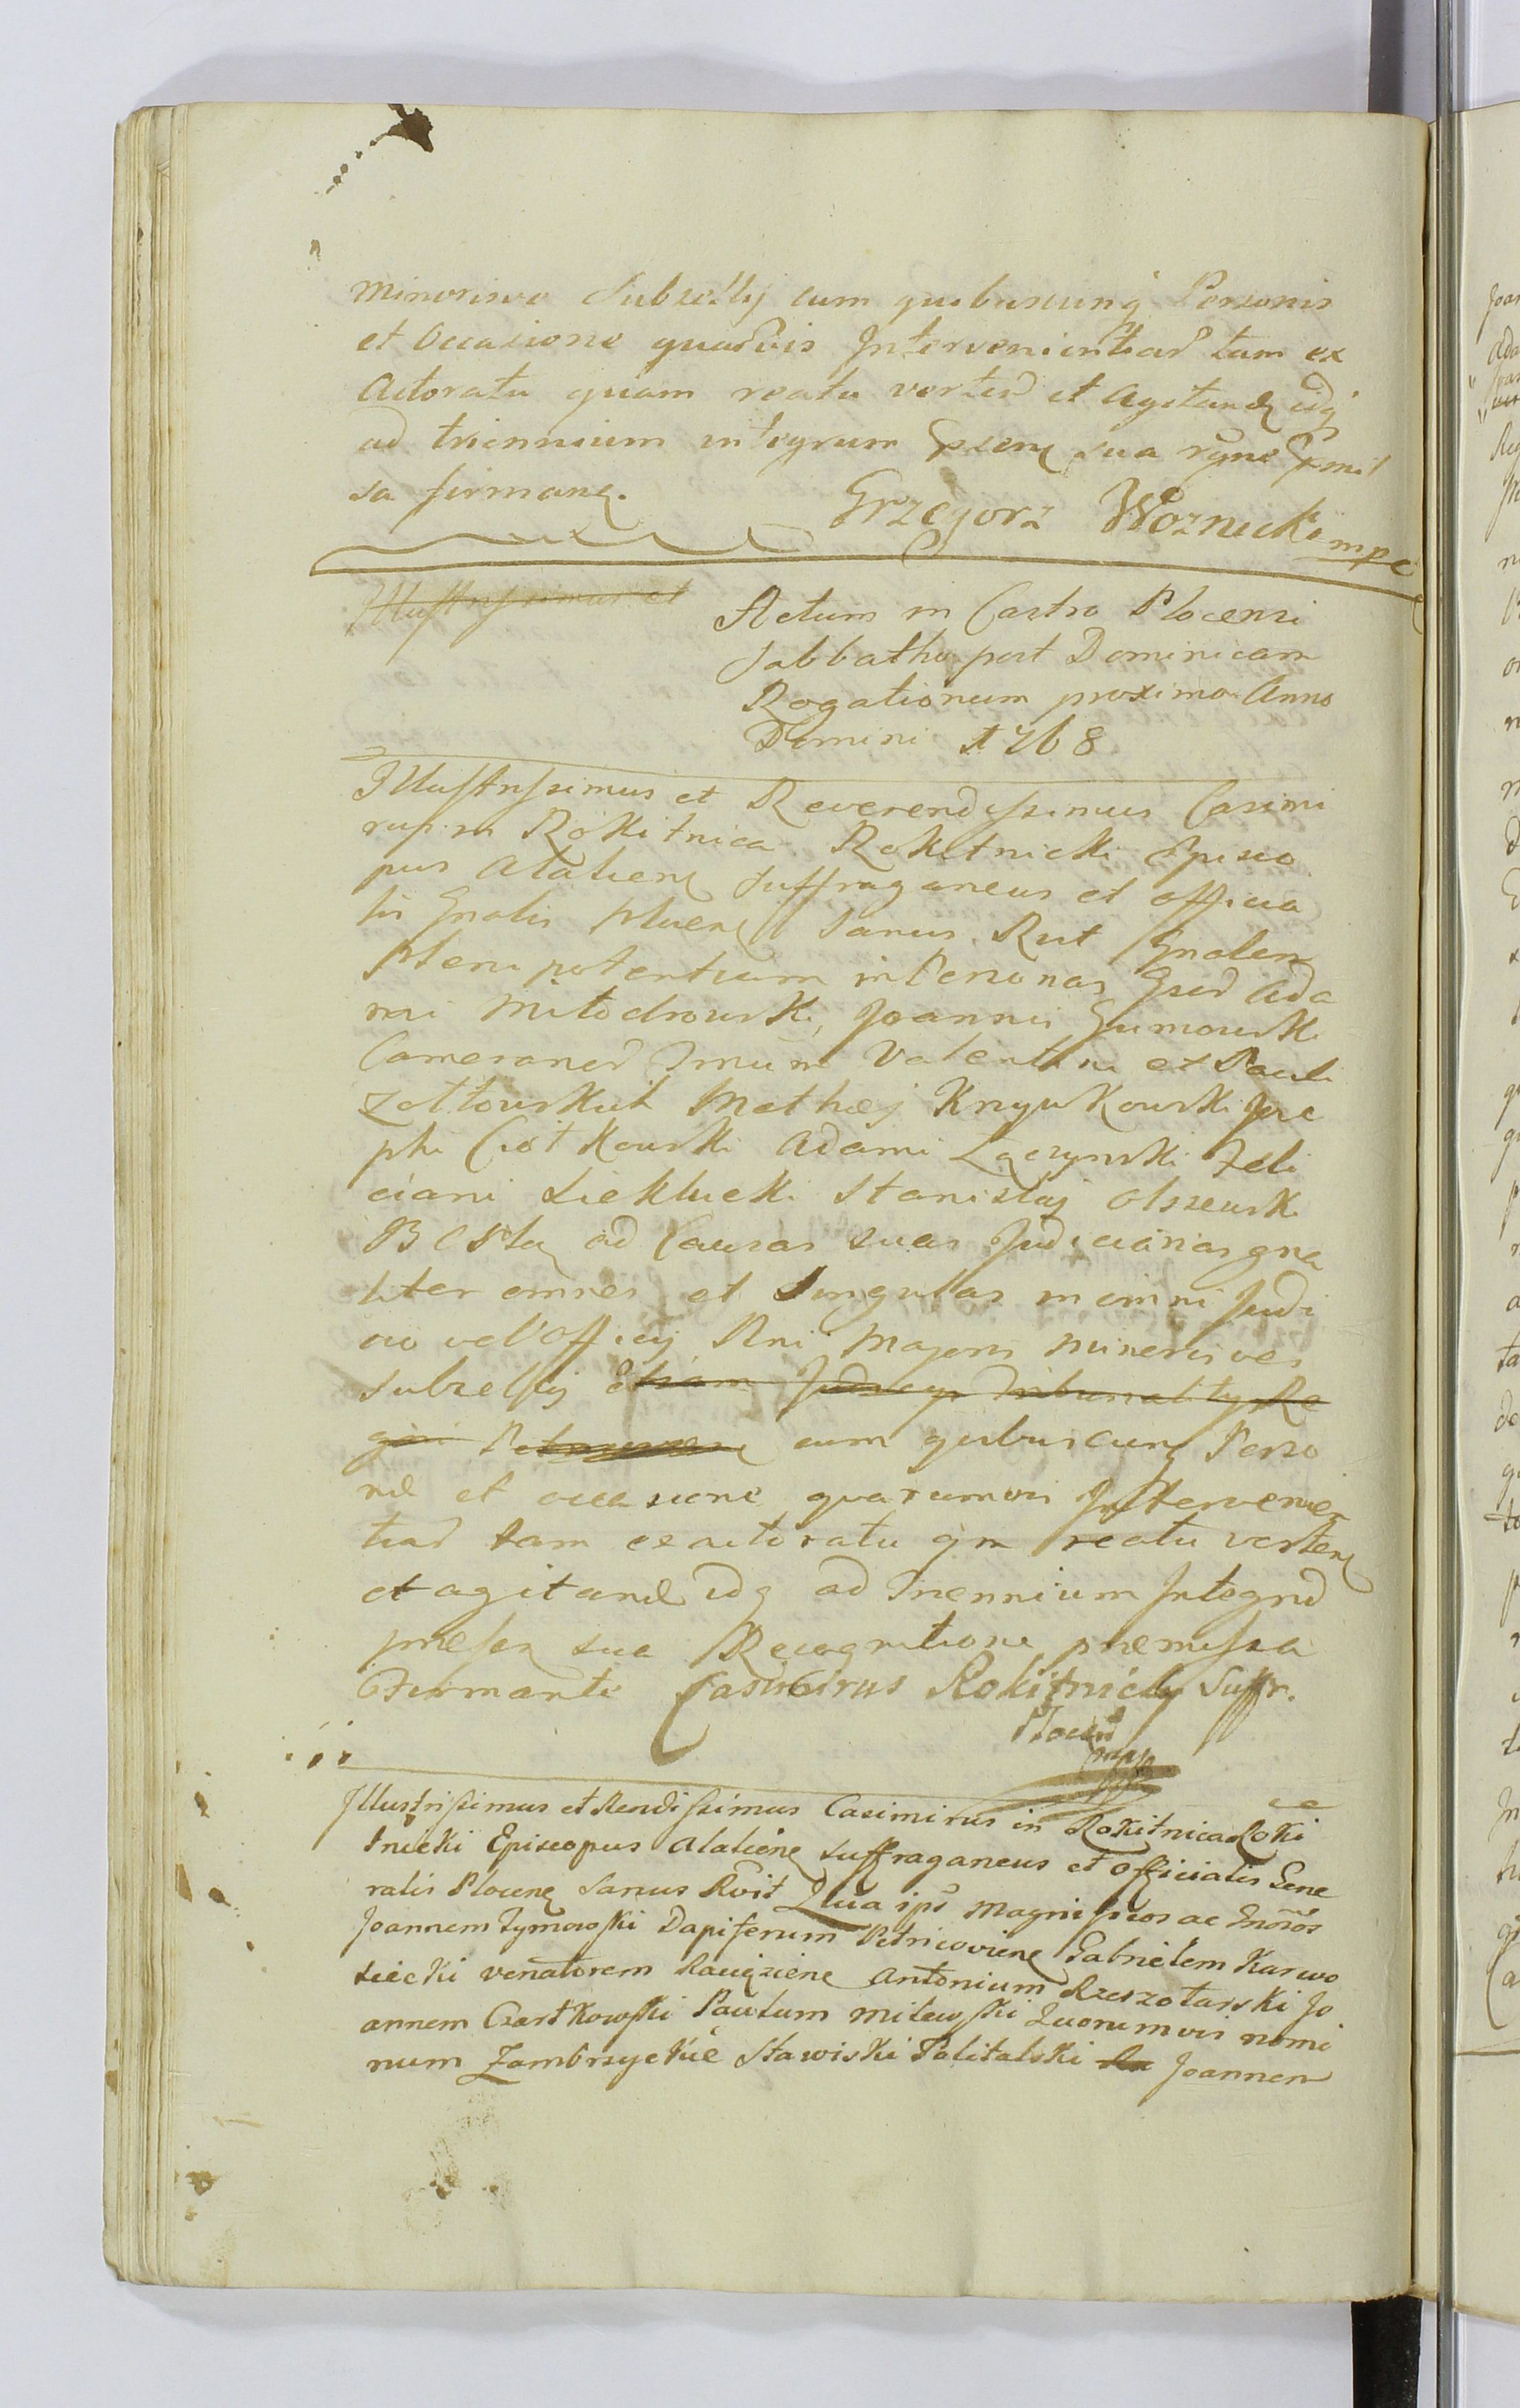 minorisve Subselly cum quibuscunq Personis
et Occasione quarvis Intervenientiar tam ex
Actoratu quam reatu verten et Agitand idq
ad triennium integrum sua
sa firmane. Grzegorz Woznicki mpr
Illustrissimus et
Actum in Castro Plocensi
Sabbatho post Dominicam
Rogationum proximo Anno
Domini 1768
Illustrissimus et Reverendissimus Casimi
rus in Rokitnica Rokitnicki Episco
pus Alatiens Suffraganeus et officia
lis Gnalis Plocens Sanus Rut Gnalem
Plenipotentiam in Personas Gsor Ada
mi Mitodrowski, Joannis Gumowski
Valentini et Pauli
Zottowskich Mathej Knyukowski Jose
phi Ciotkowski Adami Laczynski Feli
ciani Sieklucki Stanislaj Olszewski
ad Causas suas Judiciarias gna
liter omnes et Singulas in omni Judi
cio vel Officij Rni Majoris minorisve
Subselly Etiam Judicijs Tribunalitijs Re
gni cum quibuscunq Perso
nis et occasione quarumvis Intervenien
tiar tam ex actoratu qm reatu verten
et agitand idq ad Triennium Integrũ
presen sua Recognitione premissa
Firmante Casimirus Rokitnicky Suffr.
Plocen
mpp
Illustrissimus et Rendissimus Casimirus in Rokitnica Roki
tnicki Episcopus Alatiens Suffraganeus et Officialis Gene
ralis Plocens Sanus Rvit Quia ips Magnificos ac Gnosos
Joannem Tymowski Dapiferum Petricoviens Gabrielem Karwo
siecki venatorem Raciąziens Antonium Rzeszotarski Jo
annem Czartkowski Paulum Milewski Quorumvis nomi
num Zambrzyckie Stawiski Politalski Joannem